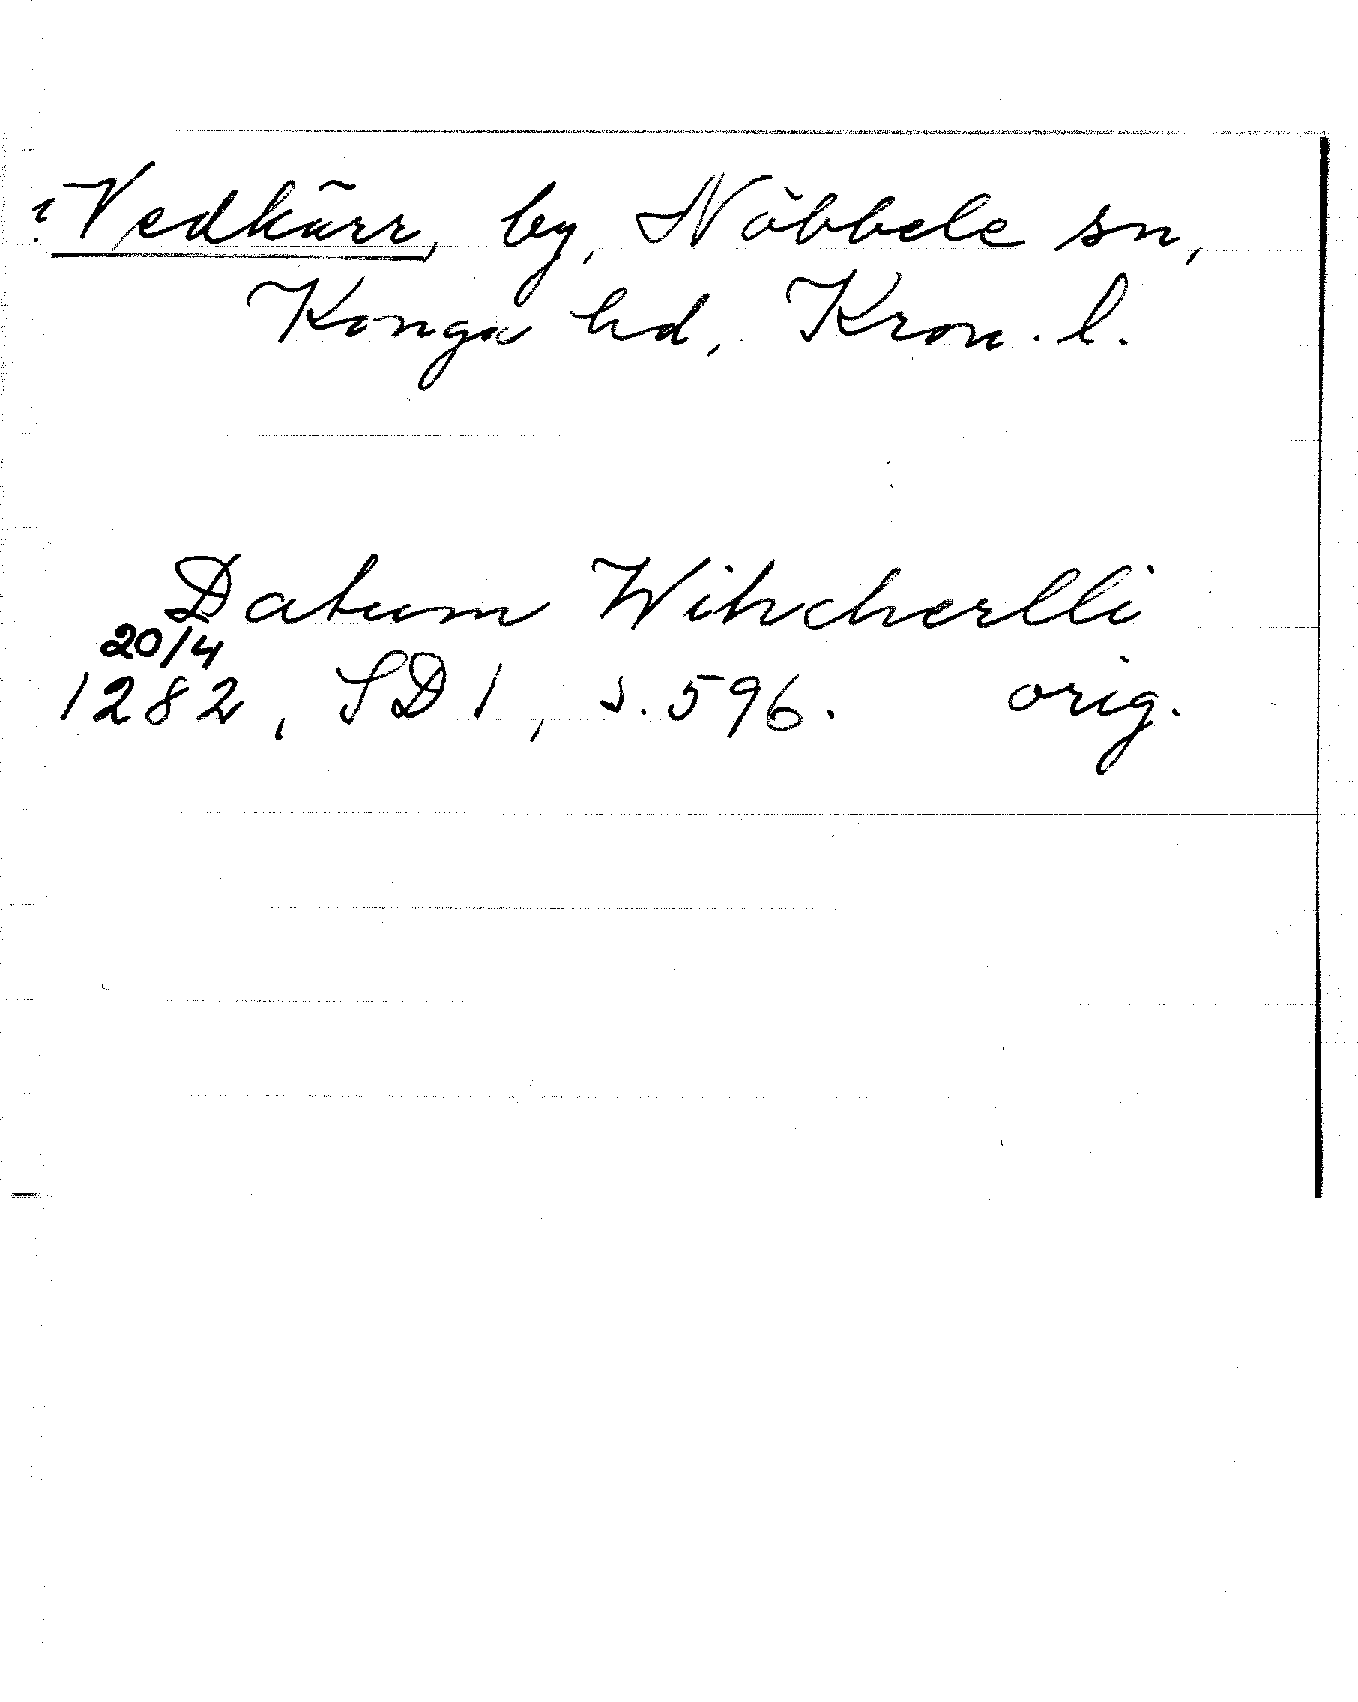 ? Vedkärr, by, Nöbbele sn,
Konga hd, Kron. l.
Datum Wihcherlli
20/4
1282, SD 1, s. 596. orig.